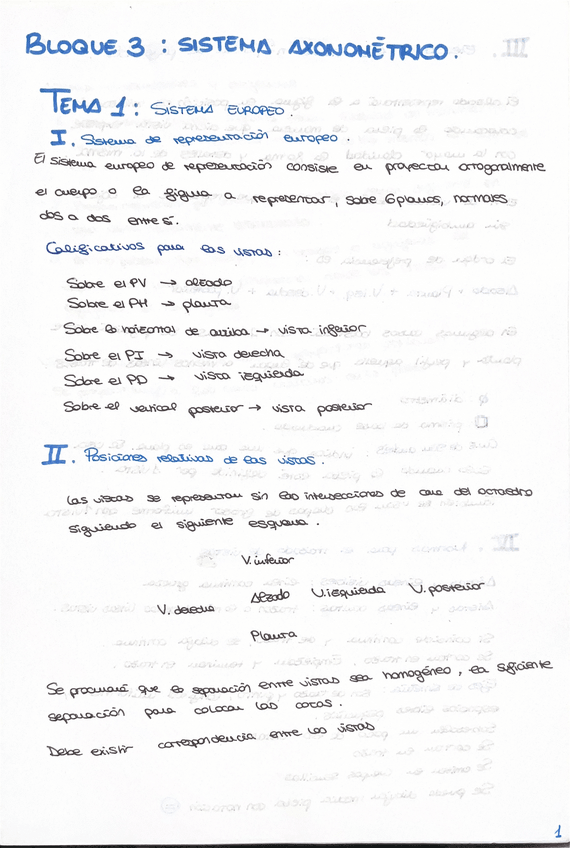 BLOQUE 3 : SISTEMA AXONOMÉTRICO.
TEMA 1 : SISTEMA EUROPEO.
I. Sistema de representación europeo.
El sistema europeo de representación consiste en proyectar ortogonalmente
el cuerpo o la figura a representar, sobre 6 planos, normales
dos a dos entre sí.
Calificativos para las vistas :
Sobre el PV → alzado
Sobre el PH → planta
Sobre lo horizontal de arriba → vista inferior
Sobre el PI → vista derecha
Sobre el PD → vista izquierda
Sobre el vertical posterior → vista posterior
II. Posiciones relativas de las vistas.
Las vistas se representan sin las intersecciones de cara del octaedro
siguiendo el siguiente esquema.
V. inferior
V. derecha Alzado V. izquierda V. posterior
Planta
Se procurará que la separación entre vistas sea homogéneo, la suficiente
separación para colocar las cotas.
Debe existir correspondencia entre las vistas
1